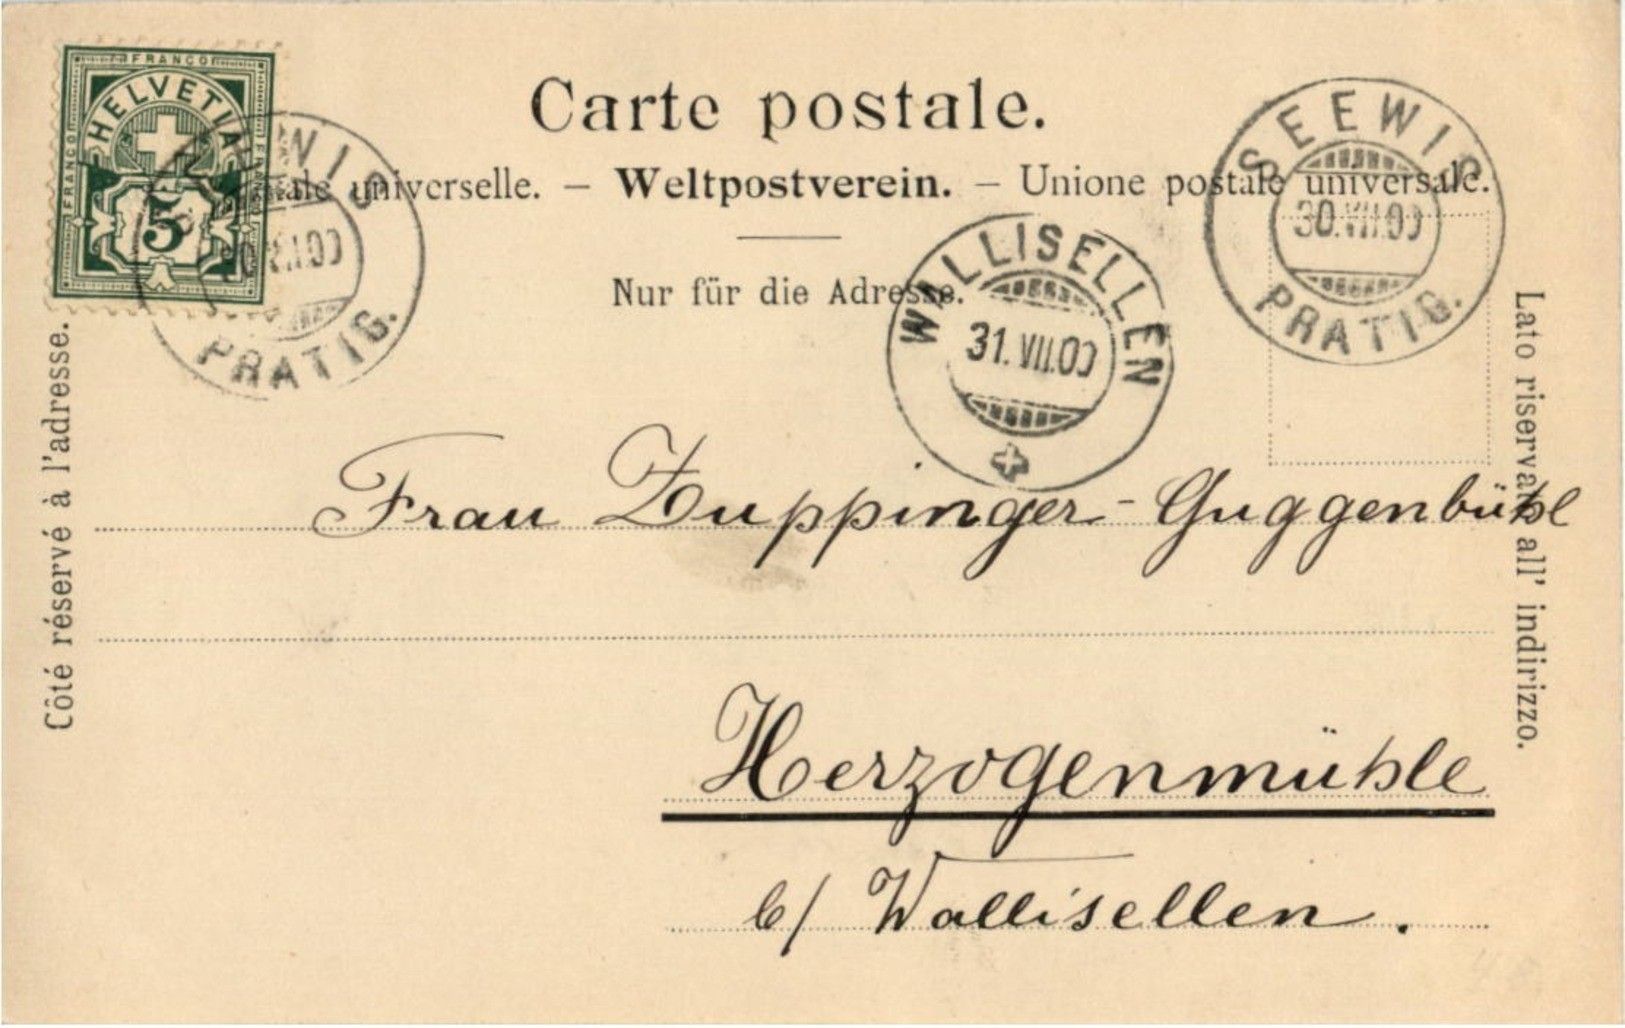 FRANCO
FRANCO
FRANCO
HELVETIA
5
Carte postale.
universelle. – Weltpostverein. – Unione postale universale.
Nur für die Adresse.
SEEWIS
30.VII.00
PRATIG.
WIS
VII.00
PRATIG.
WALLISELLEN
31.VII.00
Côté réservé à l'adresse.
Lato riservato all' indirizzo.
Frau Zuppinger-Guggenbühl
Herzogenmühle
b/ Wallisellen.